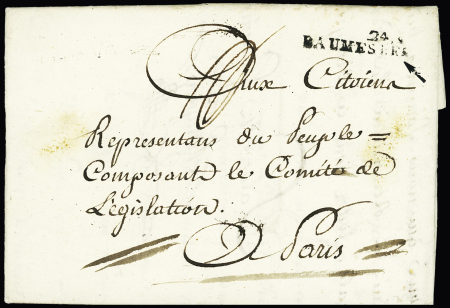 24
BAUMES LES
Aux Citoiens
Representans du Peuple=
Composant le Comité de
Législation.
A Paris